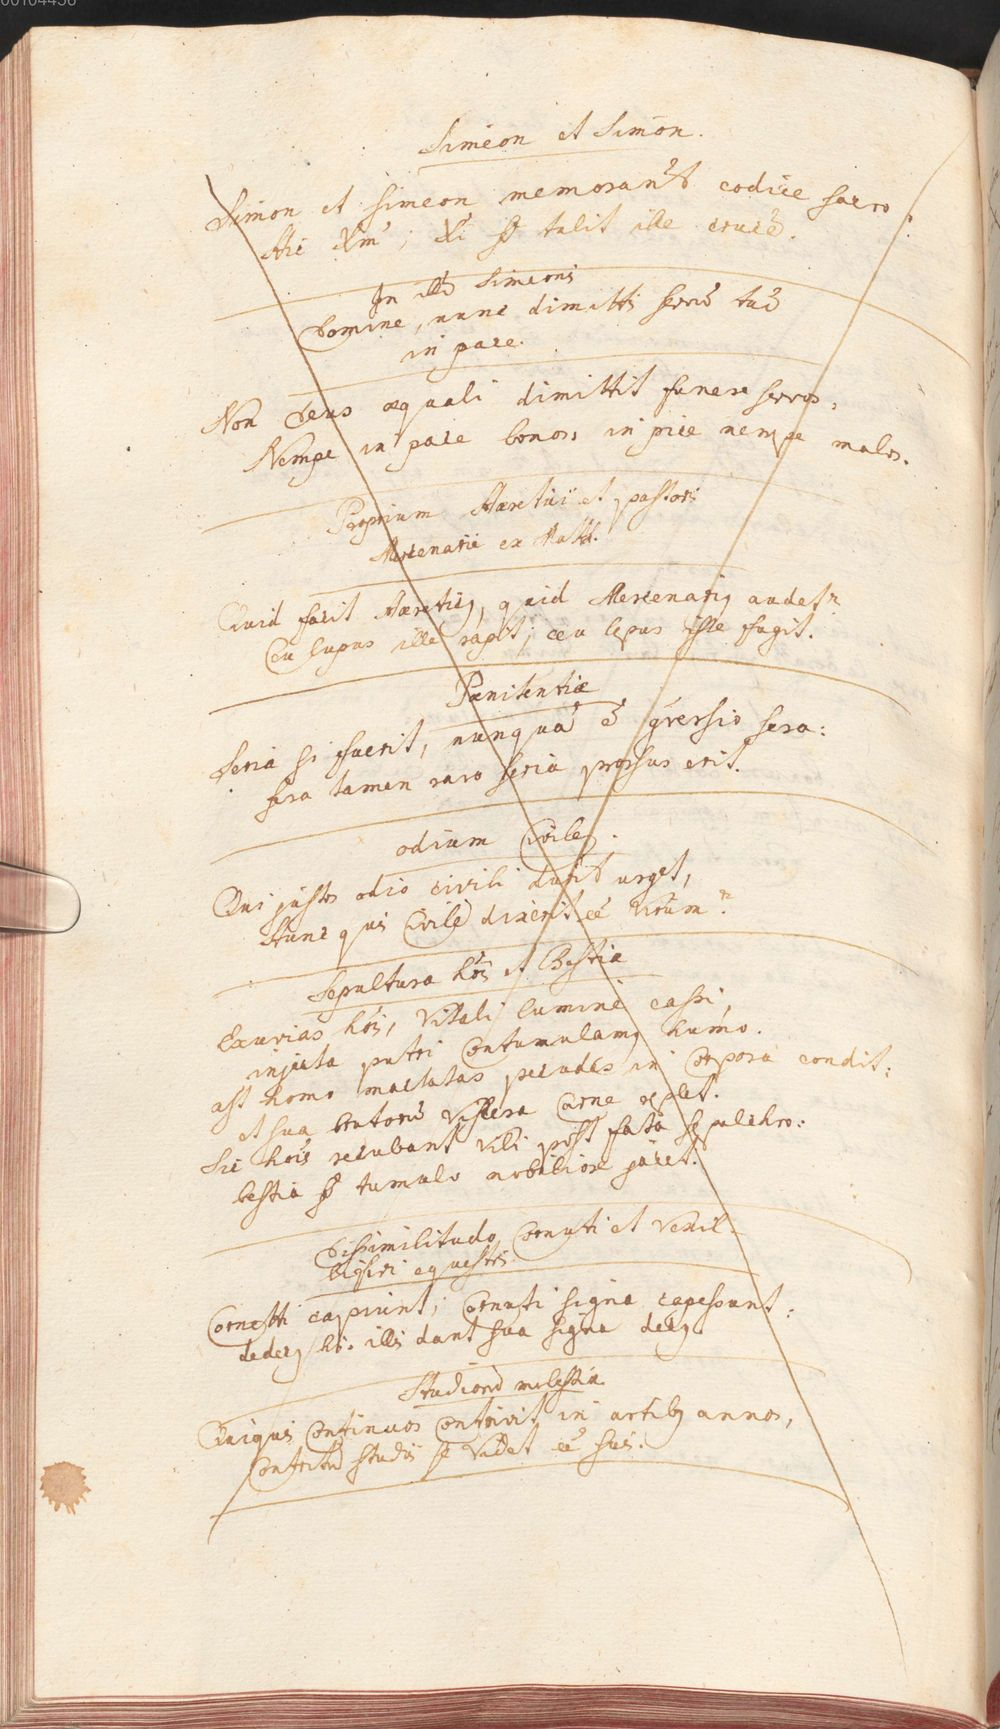 00104456
Simeon et Simon.
Simon et Simeon memorant̃ codice sacro:
Hic Xm̃; Xi sed tulit ille crucẽ.
In illud Simeonis
Domine, nunc dimittis servũ tuũ
in pace.
Non Deus æquali dimittit funere servos,
Nempe in pace bonos, in pice nempe malos.
Proprium Hæretici et pastoris
Mercenarii ex Matth.
Quid facit Hæreticq, quid Mercenariq audet?
Ceu lupus ille rapit; ceu lepus iste fugit.
Pænitentiæ
Seria si fuerit, nunquã ẽ gversio sera:
sera tamen raro seria prorsus erit.
odium Civile.
Qui justos odio civili urget,
Hunc quis Civilẽ dixerit eẽ virum?
Sepultura hõis et Bestiæ
Exuvias hõis, Vitali lumine cassi,
injecta putri contumulamq humo.
ast homo mactatas pecudes in corpora condit:
et sua brutorũ viscera carne replet.
Sic hõis recubant vili post fata sepulchro:
bestia sed tumulo nobiliore jacet.
Dissimilitudo Cornuti et Vexil-
liferi equestris
Cornetti capiunt; Cornuti signa capessunt:
dedecq hi. illis dant sua signa decq.
Studiorũ molestia
Quiquis continuos contrivit in artibq annos,
Contritũ studiis se videt eẽ suis.